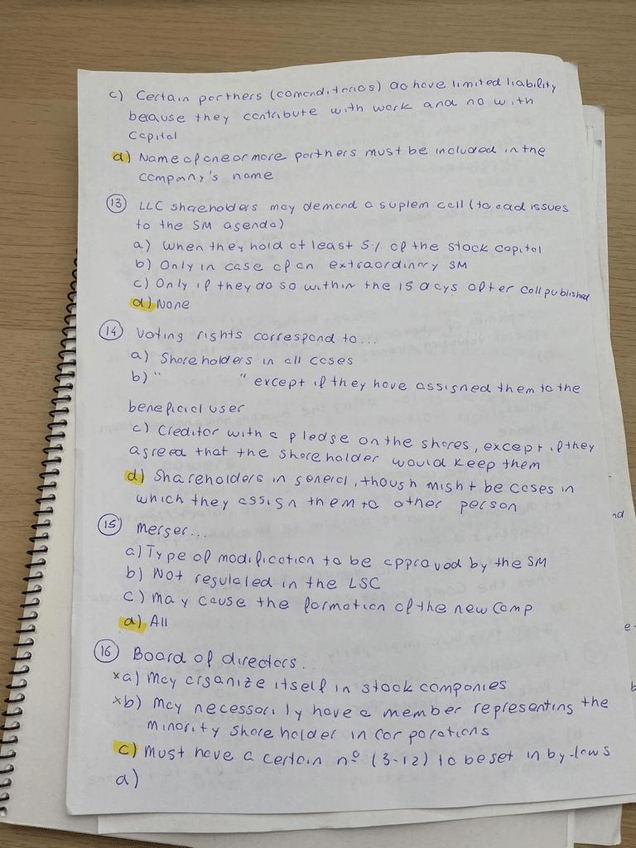 c) Certain partners (comanditarios) do have limited liability
because they contribute with work and no with
capital
d) Name of one or more partners must be included in the
company's name
13 LLC shareholders may demand a suplem call (to add issues
to the SM agenda)
a) when they hold at least 5% of the stock capital
b) Only in case of an extraordinary SM
c) Only if they do so within the 15 days after call published
d) None
14 Voting rights correspond to...
a) Shareholders in all cases
b) " " except if they have assigned them to the
beneficial user
c) Creditor with a pledge on the shares, except if they
agreed that the shareholder would keep them
d) Shareholders in general, though might be cases in
which they assign them to other person
15 Merger...
a) Type of modification to be approved by the SM
b) Not regulated in the LSC
c) May cause the formation of the new comp
d) All
16 Board of directors...
x a) May organize itself in stock companies
x b) May necessarily have a member representing the
minority shareholder in corporations
c) Must have a certain nº (3-12) to be set in by-laws
d)
nd
e
b